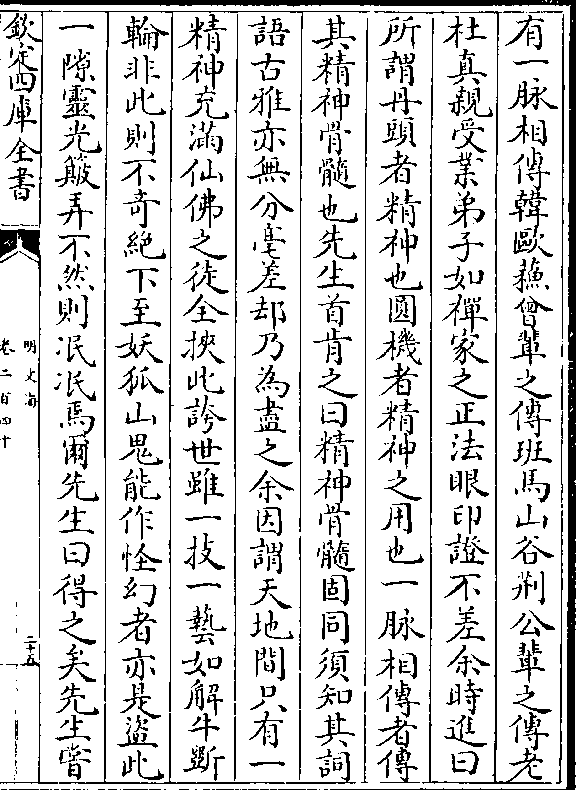 有一脉相傳韓歐蘇曾輩之傳班馬山谷荆公輩之傳老
杜真親受業弟子如禪家之正法眼印證不差余時進曰
所謂丹頭者精神也圓機者精神之用也一脉相傳者傳
其精神骨髓也先生首肯之曰精神骨髓固同須知其詞
語古雅亦無分毫差却乃為盡之余因謂天地間只有一
精神充滿仙佛之徒全挾此誇世雖一技一藝如解牛斲
輪非此則不奇絶下至妖狐山鬼能作怪幻者亦是盜此
一隙靈光簸弄不然則泯泯焉爾先生曰得之矣先生嘗
欽定四庫全書
明文海
卷二百四十
二十五